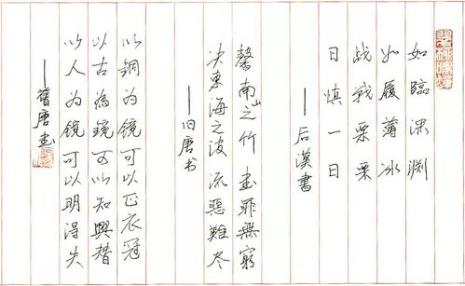 如臨深淵
如履薄冰
战戰栗栗
日慎一日
——后漢書
罄南山之竹 書罪無窮
决東海之波 流惡難尽
——旧唐书
以銅为鏡可以正衣冠
以古為鏡可以知興替
以人为鏡可以明得失
——舊唐書